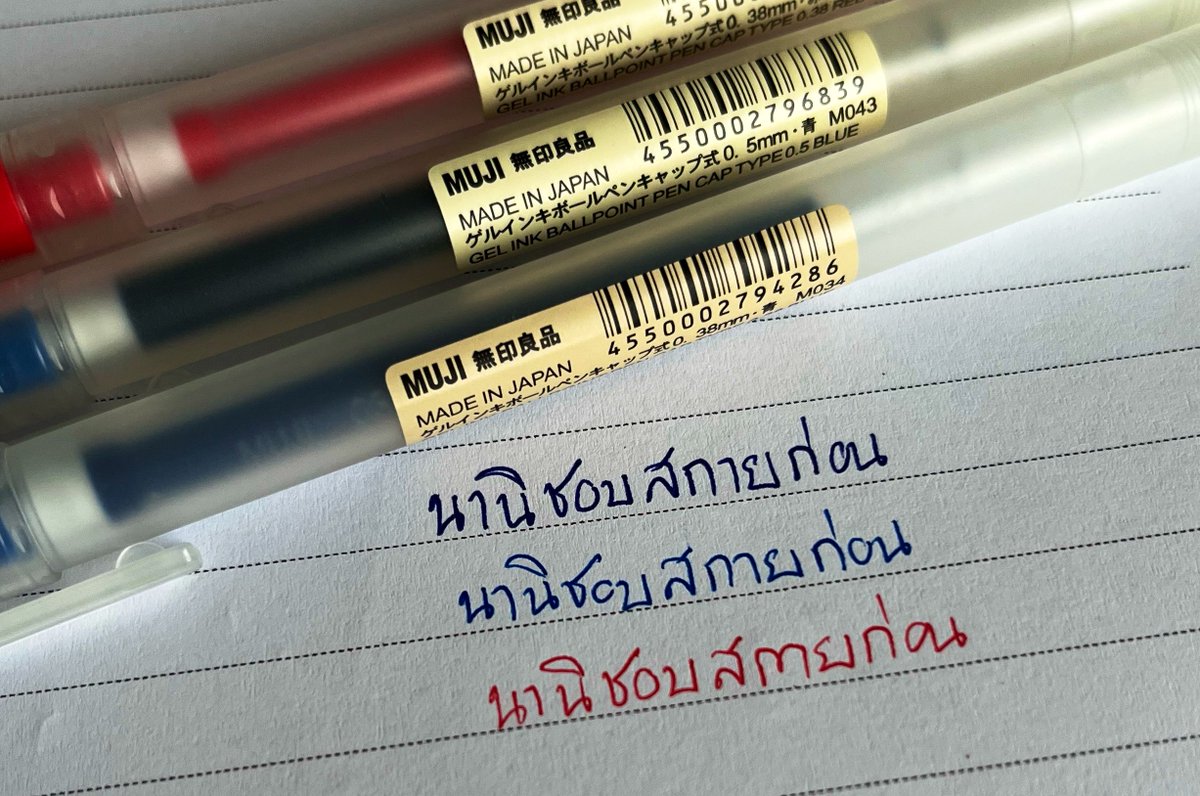 MUJI 無印良品
MADE IN JAPAN
ゲルインキボールペンキャップ式0. 38mm
GEL INK BALLPOINT PEN CAP TYPE 0.38 RED
MUJI 無印良品
4550002796839
MADE IN JAPAN
ゲルインキボールペンキャップ式0. 5mm・青 M043
GEL INK BALLPOINT PEN CAP TYPE 0.5 BLUE
MUJI 無印良品
4550002794286
MADE IN JAPAN
ゲルインキボールペンキャップ式0. 38mm・青 M034
นานิชอบสกายก่อน
นานิชอบสกายก่อน
นานิชอบสกายก่อน